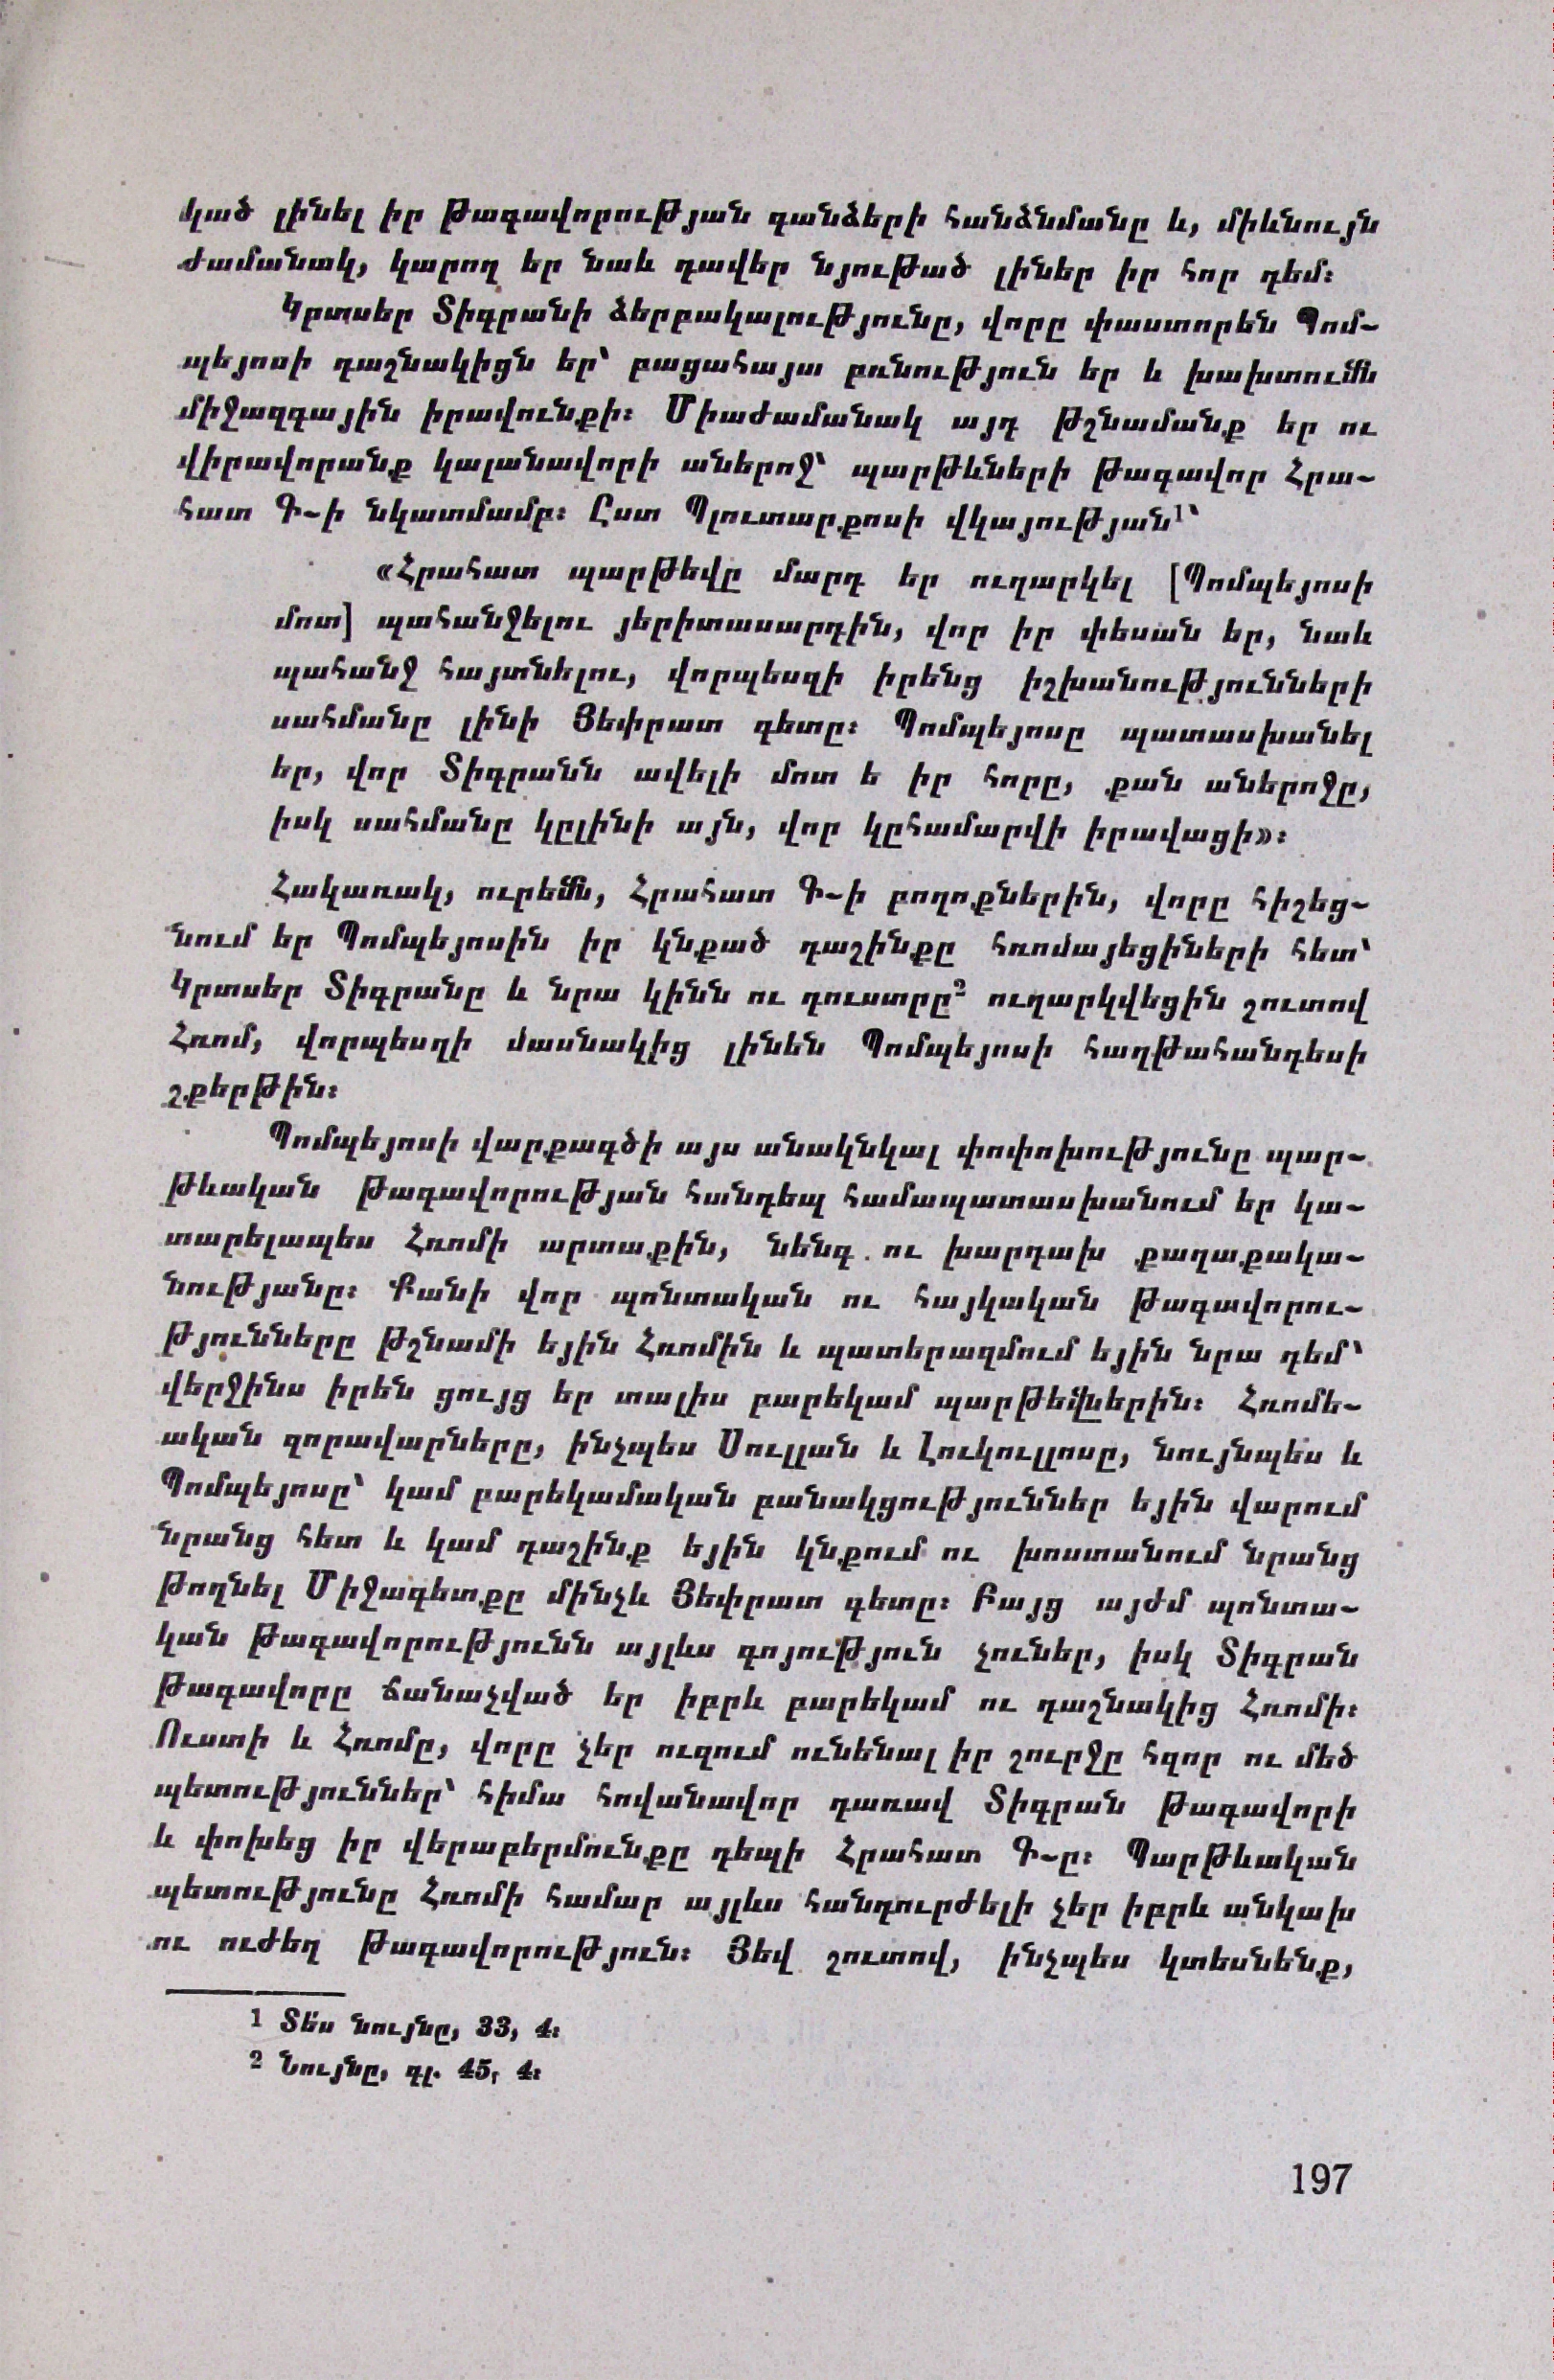 կած լինել իր թագավորության գանձերի հանձնմանը և, միևնույն
ժամանակ, կարող եր նաև դավեր նյութած լիներ իր հոր դեմ։
Կրտսեր Տիգրանի ձերբակալությունը, վորը փաստորեն Պոմ-
պեյոսի դաշնակիցն եր՝ բացահայտ բռնություն եր և խախտումն
միջազգային իրավունքի։ Միաժամանակ այդ թշնամանք եր ու
վիրավորանք կալանավորի աներոջ՝ պարթևների թագավոր Հրա-
հատ Գ-ի նկատմամբ։ Ըստ Պլուտարքոսի վկայության¹՝
«Հրահատ պարթեվը մարդ եր ուղարկել [Պոմպեյոսի
մոտ] պահանջելու յերիտասարդին, վոր իր փեսան եր, նաև
պահանջ հայտնելու, վորպեսզի իրենց իշխանությունների
սահմանը լինի Յեփրատ գետը։ Պոմպեյոսը պատասխանել
եր, վոր Տիգրանն ավելի մոտ ե իր հորը, քան աներոջը,
իսկ սահմանը կըլինի այն, վոր կըհամարվի իրավացի»։
Հակառակ, ուրեմն, Հրահատ Գ-ի բողոքներին, վորը հիշեց-
նում եր Պոմպեյոսին իր կնքած դաշինքը հռոմայեցիների հետ՝
Կրտսեր Տիգրանը և նրա կինն ու դուստրը² ուղարկվեցին շուտով
Հռոմ, վորպեսզի մասնակից լինեն Պոմպեյոսի հաղթահանդեսի
շքերթին։
Պոմպեյոսի վարքագծի այս անակնկալ փոփոխությունը պար-
թևական թագավորության հանդեպ համապատասխանում եր կա-
տարելապես Հռոմի արտաքին, նենգ ու խարդախ քաղաքակա-
նությանը։ Քանի վոր պոնտական ու հայկական թագավորու-
թյունները թշնամի եյին Հռոմին և պատերազմում եյին նրա դեմ՝
վերջինս իրեն ցույց եր տալիս բարեկամ պարթեվներին։ Հռոմե-
ական զորավարները, ինչպես Սուլլան և Լուկուլլոսը, նույնպես և
Պոմպեյոսը՝ կամ բարեկամական բանակցություններ եյին վարում
նրանց հետ և կամ դաշինք եյին կնքում ու խոստանում նրանց
թողնել Միջագետքը մինչև Յեփրատ գետը։ Բայց այժմ պոնտա-
կան թագավորությունն այլևս գոյություն չուներ, իսկ Տիգրան
թագավորը ճանաչված եր իբրև բարեկամ ու դաշնակից Հռոմի։
Ուստի և Հռոմը, վորը չեր ուզում ունենալ իր շուրջը հզոր ու մեծ
պետություններ՝ հիմա հովանավոր դառավ Տիգրան թագավորի
և փոխեց իր վերաբերմունքը դեպի Հրահատ Գ-ը։ Պարթևական
պետությունը Հռոմի համար այլևս հանդուրժելի չեր իբրև անկախ
ու ուժեղ թագավորություն։ Յեվ շուտով, ինչպես կտեսնենք,
1 Տես նույնը, 33, 4։
2 Նույնը, գլ. 45, 4։
197